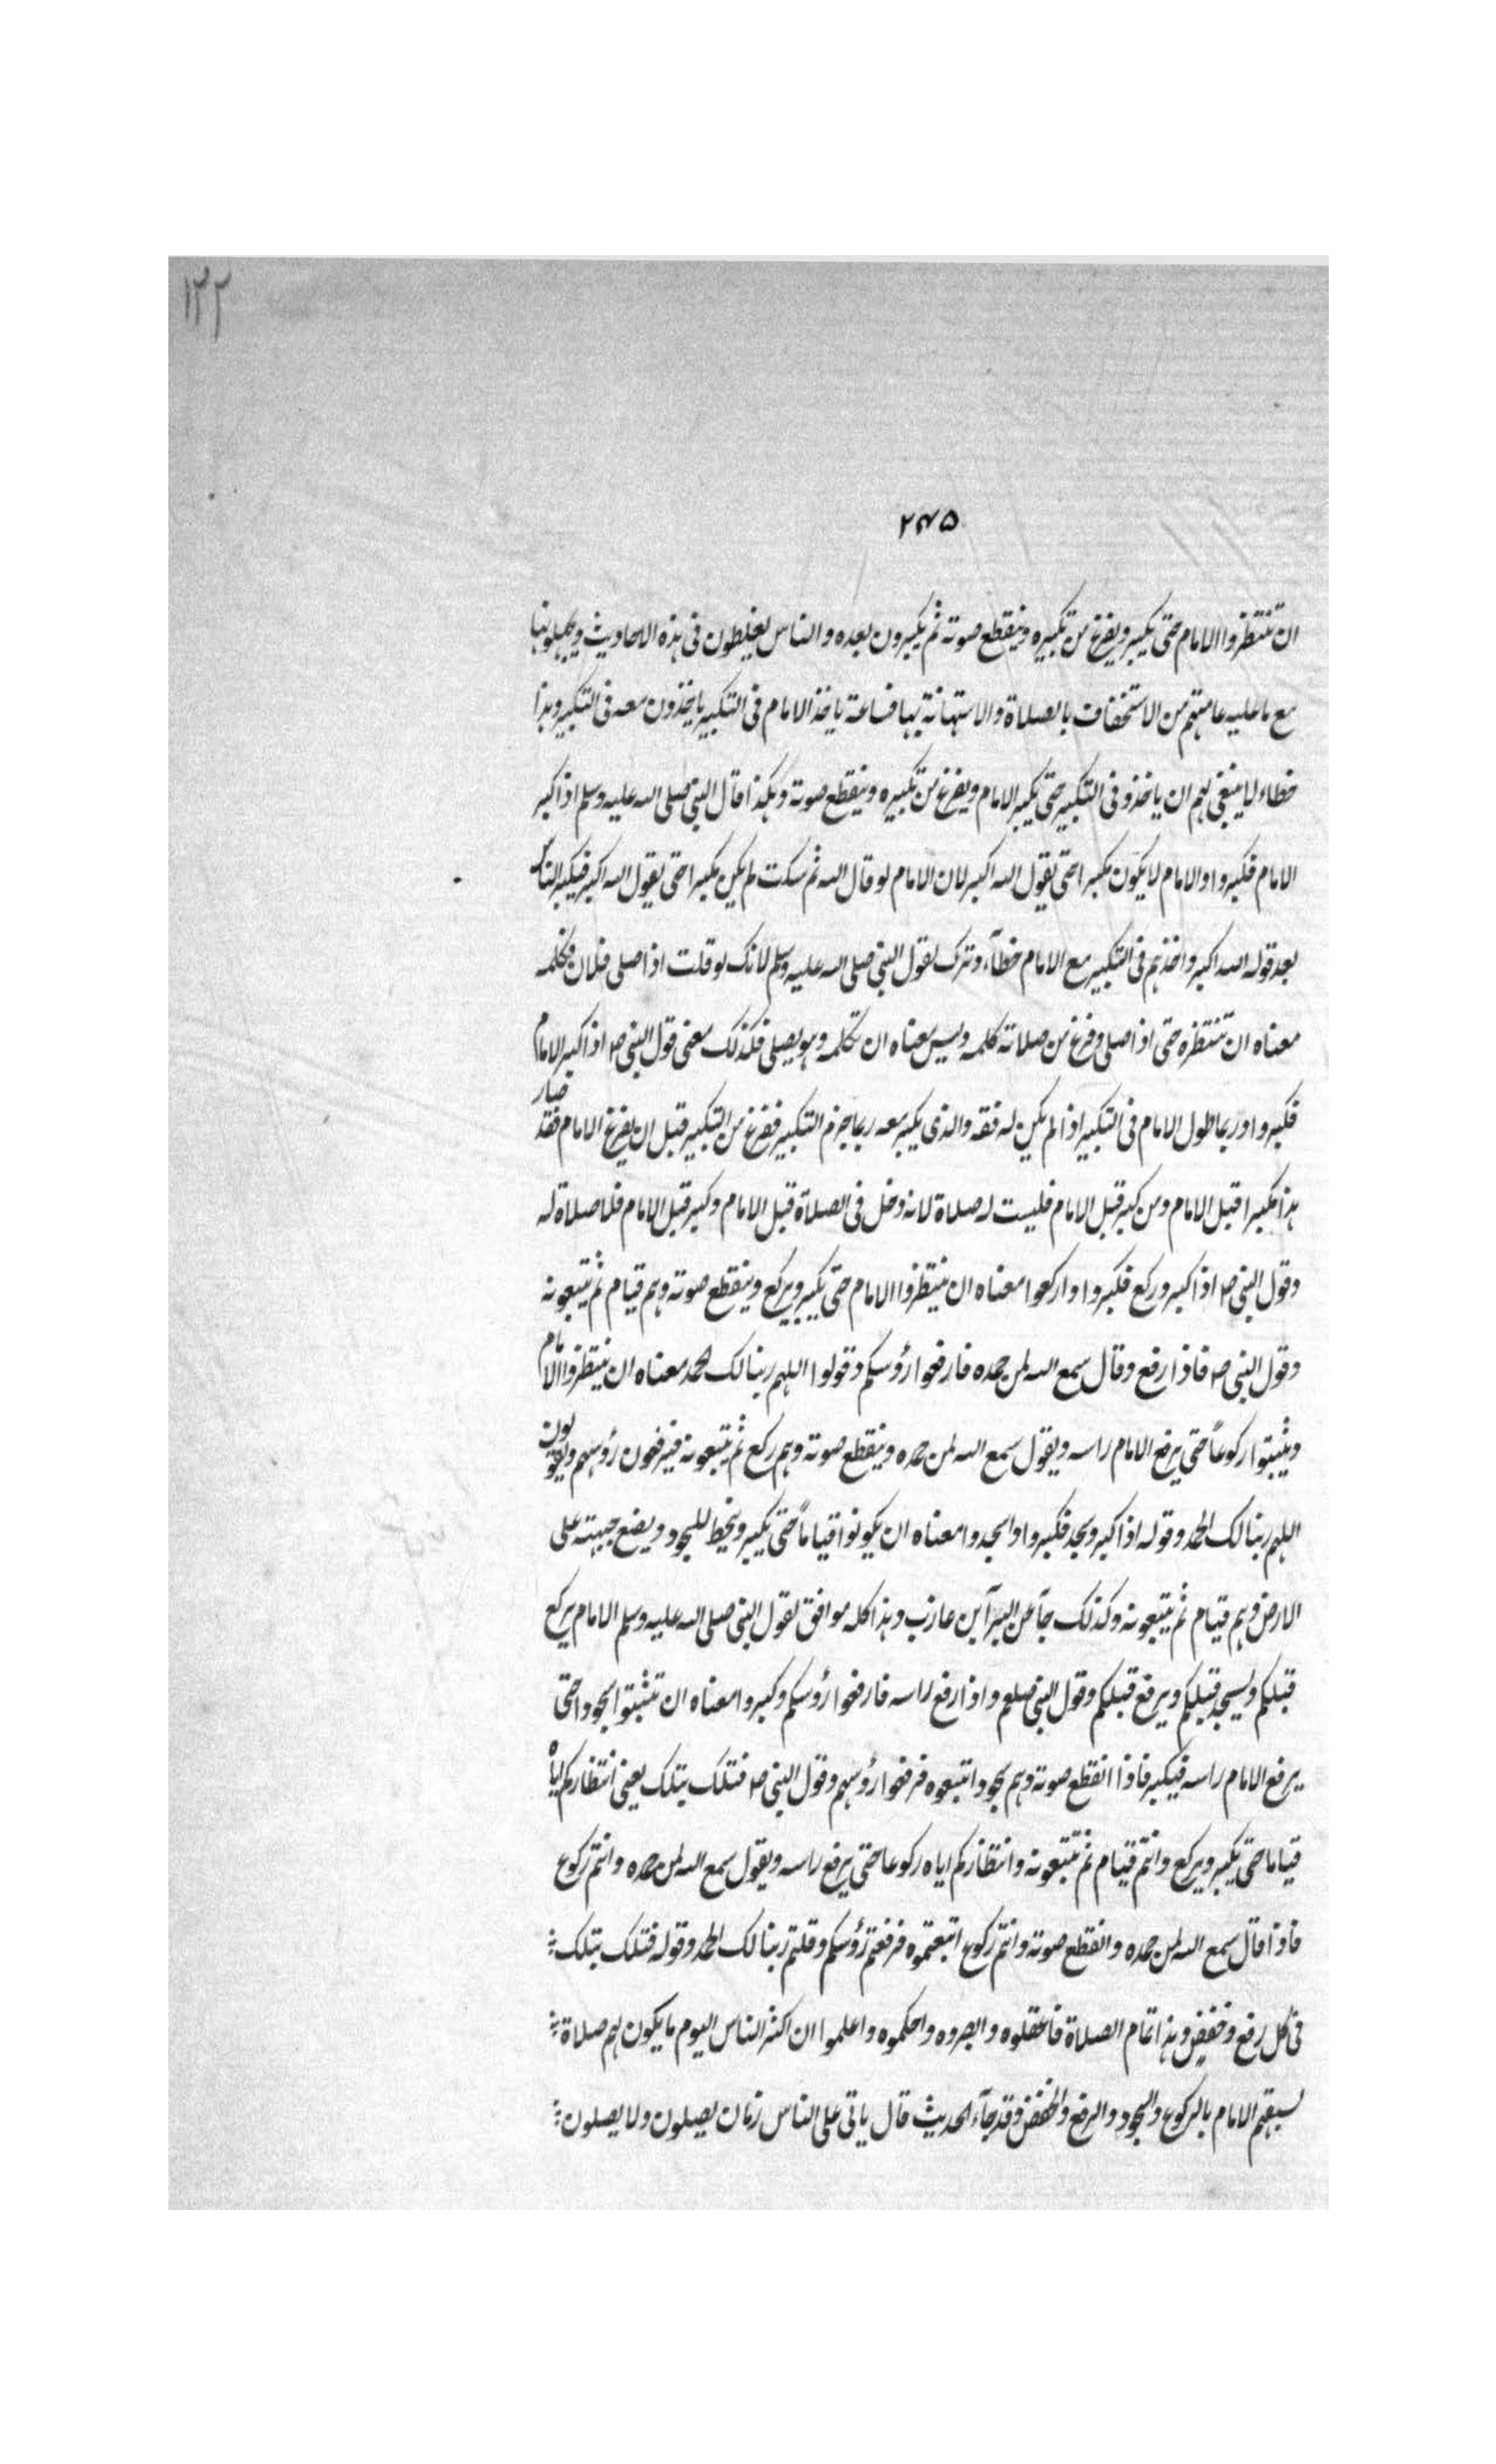 ١٣٢
٢٤٥
ان تنتظروا الامام حتى يكبر ويفرغ من تكبيره وينقطع صوته ثم يكبرون بعده والناس يغلطون فى هذه الاحاديث ويجهلونها
مع ما عليه عامتهم من الاستخفاف بالصلاة والاستهانة بها فساعة ياخذ الامام فى التكبير ياخذون معه فى التكبير وهذا
خطاء لا ينبغى لهم ان ياخذو فى التكبير حتى يكبر الامام ويفرغ من تكبيره وينقطع صوته وهكذا قال النبى صلى الله عليه وسلم اذا كبر
الامام فكبروا والامام لا يكون مكبرا حتى يقول الله اكبر لان الامام لو قال الله ثم سكت لم يكن مكبرا حتى يقول الله اكبر فيكبر الناس
بعد قوله الله اكبر واخذهم فى التكبير مع الامام خطآء وترك لقول النبى صلى الله عليه وسلم لانك لو قلت اذا صلى فلان فكلمه
معناه ان تنتظره حتى اذا صلى وفرغ من صلاته كلمه وليس معناه ان تكلمه وهو يصلى فكذلك معنى قول النبى ص اذا كبر الامام
فكبروا وربما طول الامام فى التكبير اذا لم يكن له فقه والذى يكبر معه ربما جزم التكبير ففرغ من التكبير قبل ان يفرغ الامام فقد صار
هذا مكبرا قبل الامام ومن كبر قبل الامام فليست له صلاة لانه دخل فى الصلاة قبل الامام وكبر قبل الامام فلا صلاة له
وقول النبى ص اذا كبر وركع فكبروا واركعوا معناه ان ينتظروا الامام حتى يكبر ويركع وينقطع صوته وهم قيام ثم يتبعونه
وقول النبى ص فاذا رفع وقال سمع الله لمن حمده فارفعوا رؤسكم وقولوا اللهم ربنا لك الحمد معناه ان ينتظروا الامام
ويثبتوا ركوعاً حتى يرفع الامام راسه ويقول سمع الله لمن حمده وينقطع صوته وهم ركع ثم يتبعونه فيرفعون رؤسهم ويقولون
اللهم ربنا لك الحمد وقوله اذا كبر وسجد فكبروا واسجدوا معناه ان يكونوا قياماً حتى يكبر وينحط للسجود ويضع جبهته على
الارض وهم قيام ثم يتبعونه وكذلك جآ عن البرآ بن عازب وهذا كله موافق لقول النبى صلى الله عليه وسلم الامام يركع
قبلكم ويسجد قبلكم ويرفع قبلكم وقول النبى صلعم واذا رفع راسه فارفعوا رؤسكم وكبروا معناه ان تثبتوا سجودا حتى
يرفع الامام راسه فيكبر فاذا انقطع صوته وهم سجود اتبعوه فرفعوا رؤسهم وقول النبى ص فتلك بتلك يعنى انتظاركم اياه
قياما حتى يكبر ويركع وانتم قيام ثم تتبعونه وانتظاركم اياه ركوعا حتى يرفع راسه ويقول سمع الله لمن حمده وانتم ركوع
فاذا قال سمع الله لمن حمده وانقطع صوته وانتم ركوع اتبعتموه فرفعتم رؤسكم وقلتم ربنا لك الحمد وقوله فتلك بتلك
فى كل رفع وخفض وهذا تمام الصلاة فاعقلوه وابصروه واحكموه واعلموا ان اكثر الناس اليوم ما يكون لهم صلاة
لسبقهم الامام بالركوع والسجود والرفع والخفض وقد جآء الحديث قال ياتى على الناس زمان يصلون ولا يصلون